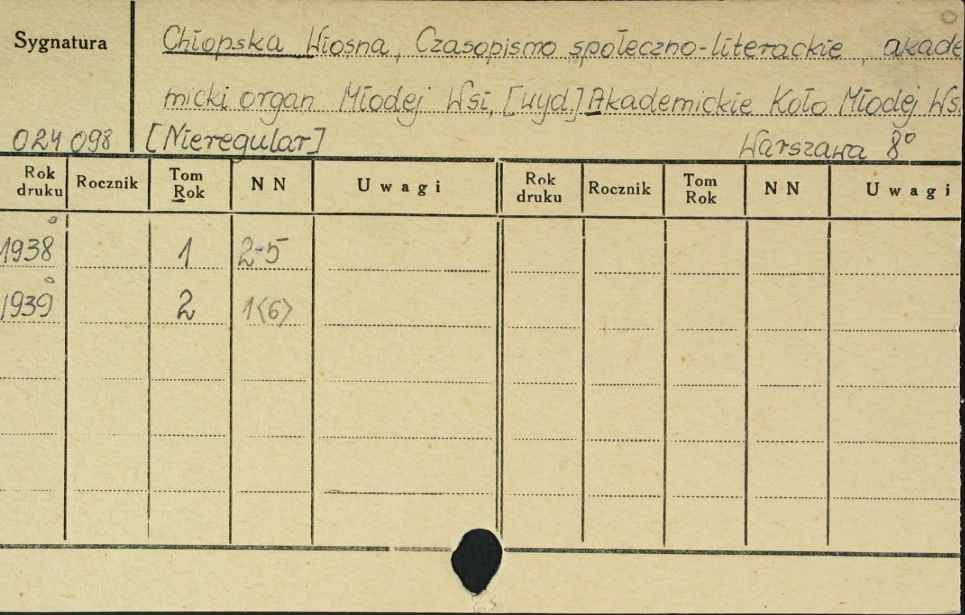 Sygnatura
Chłopska Wiosna, Czasopismo społeczno-literackie, akade
micki organ Młodej Wsi, [wyd.] Akademickie Koło Młodej Wsi
024 098 [Nieregular] Warszawa 8°
Rok druku Rocznik Tom Rok NN Uwagi Rok druku Rocznik Tom Rok NN Uwagi
1938 1 2-5
1939 2 1<6>